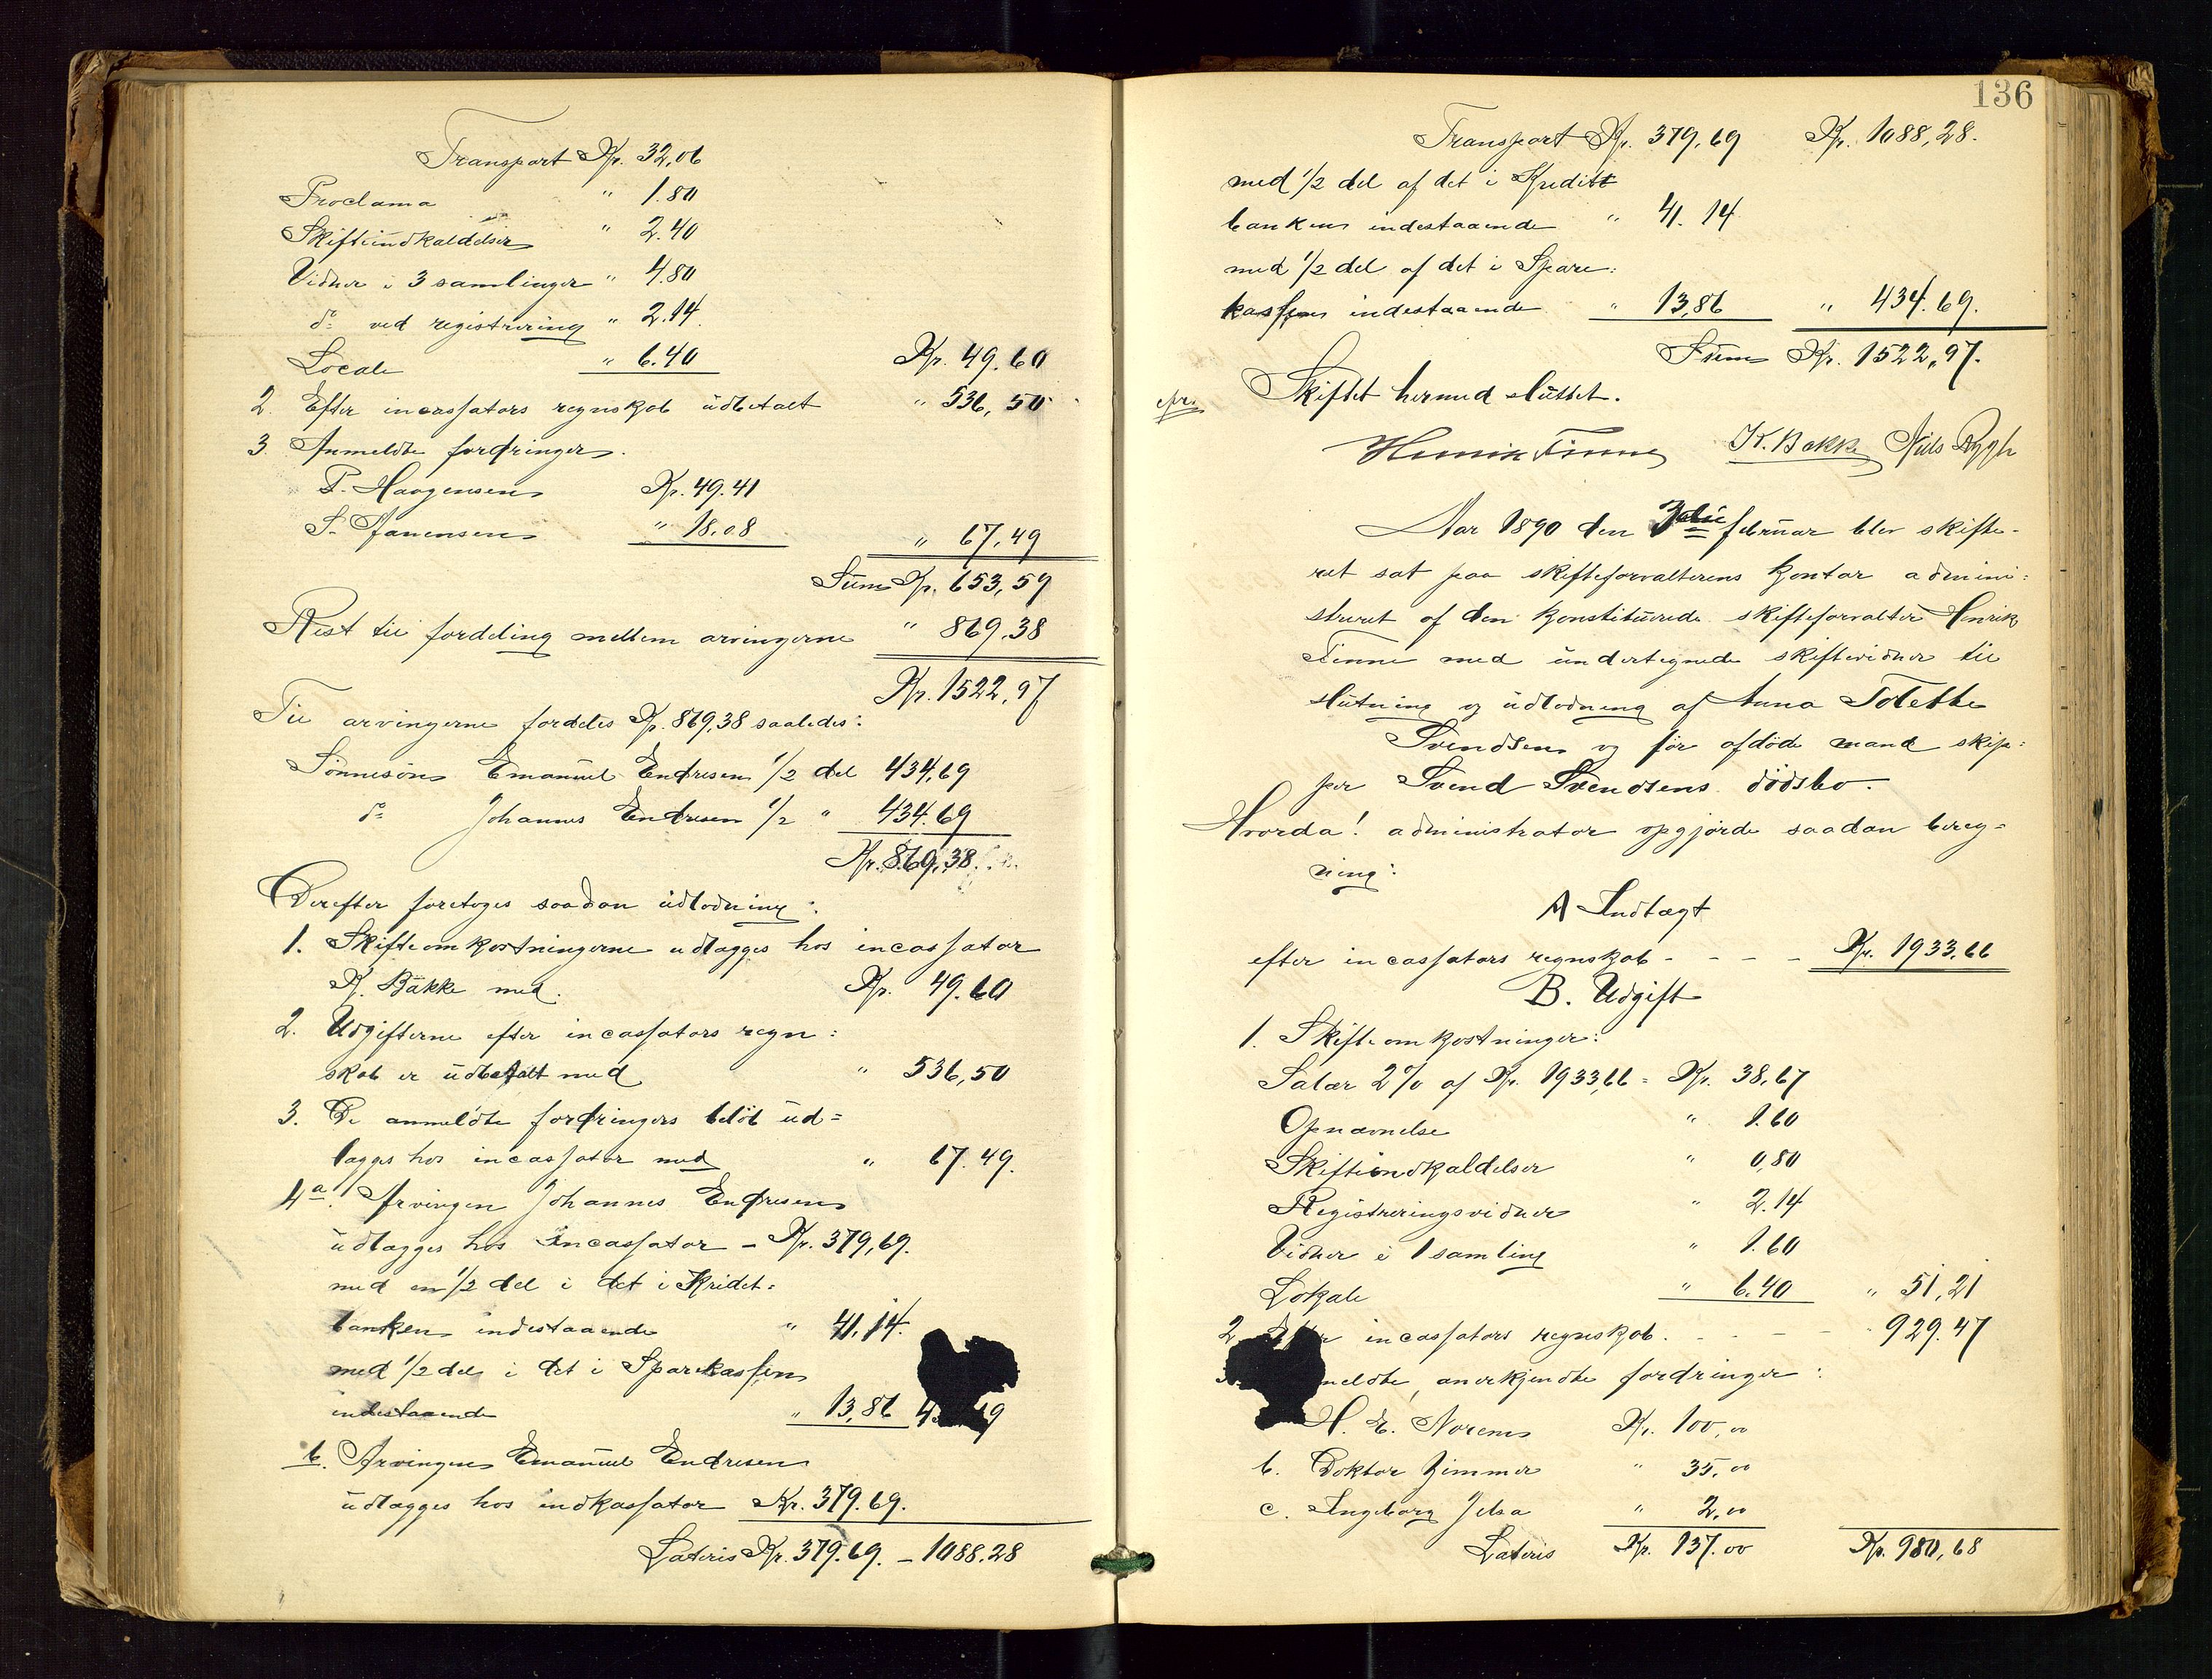 Transport Kr. 32,06
Proclama " 1.80
Skifteindkaldelser " 2.40
Vidner i 3 samlinger " 4.80
do ved registrering " 2.14
Locale " 6.40 Kr. 49.60
2. Efter incassators regnskab udbetalt " 536,50
3. Anmeldte fordringer.
P. Haagensen Kr. 49.41
S. Janensen " 18.08 " 67,49
Sum Kr. 653,59
Rest til fordeling mellem arvingerne " 869.38
Kr. 1522,97
Til arvingerne fordeles Kr. 869,38 saaledes:
Sønnesøn Emanuel Endresen 1/2 del 434,69
do Johannes Endresen 1/2 " 434.69
Kr. 869,38
Derefter foretoges saadan udlodning:
1. Skifteomkostningerne udlægges hos incassator
K. Bakke med. Kr. 49.60
2. Udgifterne efter incassators regn=
skab er udbetalt med " 536,50
3. De anmeldte fordringers beløb ud=
lægges hos incassator med " 67.49.
4a. Arvingen Johannes Endresen
udlægges hos Incassator - Kr. 379,69.
med en 1/2 del i det i Kridet=
banken indestaaende " 41,14.
med 1/2 del i det i Sparekassen
indestaaende " 13,86
b. Arvingen Emanuel Endresen
udlægges hos indkassator Kr. 379.69.
Lateris Kr. 379.69. - 1088.28
136
Transport Kr. 379,69 Kr. 1088,28.
med 1/2 del af det i Kredit
bankens indestaaende " 41.14
med 1/2 del af det i Spare:
kassens indestaaende " 13,86 " 434.69.
Sum Kr. 1522,97.
Skiftet hermed sluttet.
Henrik Finne K. Bakke Niels Rygh
Aar 1890 den februar blev skifte-
ret sat paa skifteforvalterens kontor admini:
streret af den konstituerede skifteforvalter Henrik
Finne med undertegnede skiftevidner til
slutning og udlodning af Anna Tolette
Svendsen og før afdøde mand skip:
per Svend Svendsens dødsbo.
Hvorda! administrator opgjorde saadan bereg=
ning:
A Indtægt
efter incassators regnskab - - - - Kr. 1933,66
B. Udgift
1. Skifteomkostninger:
Salær 2% af Kr. 1933,66 = Kr. 38,67
Opnævnelse " 1.60
Skifteindkaldelser " 0,80
Registreringsvidner " 2.14
Vidner i 1 samling " 1.60
Lokale " 6.40 " 51,21
2 incassators regnskab. - - - - 929.47
meldte, anerkjendte fordringer:
H. E. Norem Kr. 100,00
b. Doktor Zimmer " 35,00
c. Ingeborg Jelsa " 2,00
Lateris Kr. 137.00 Kr. 980,68